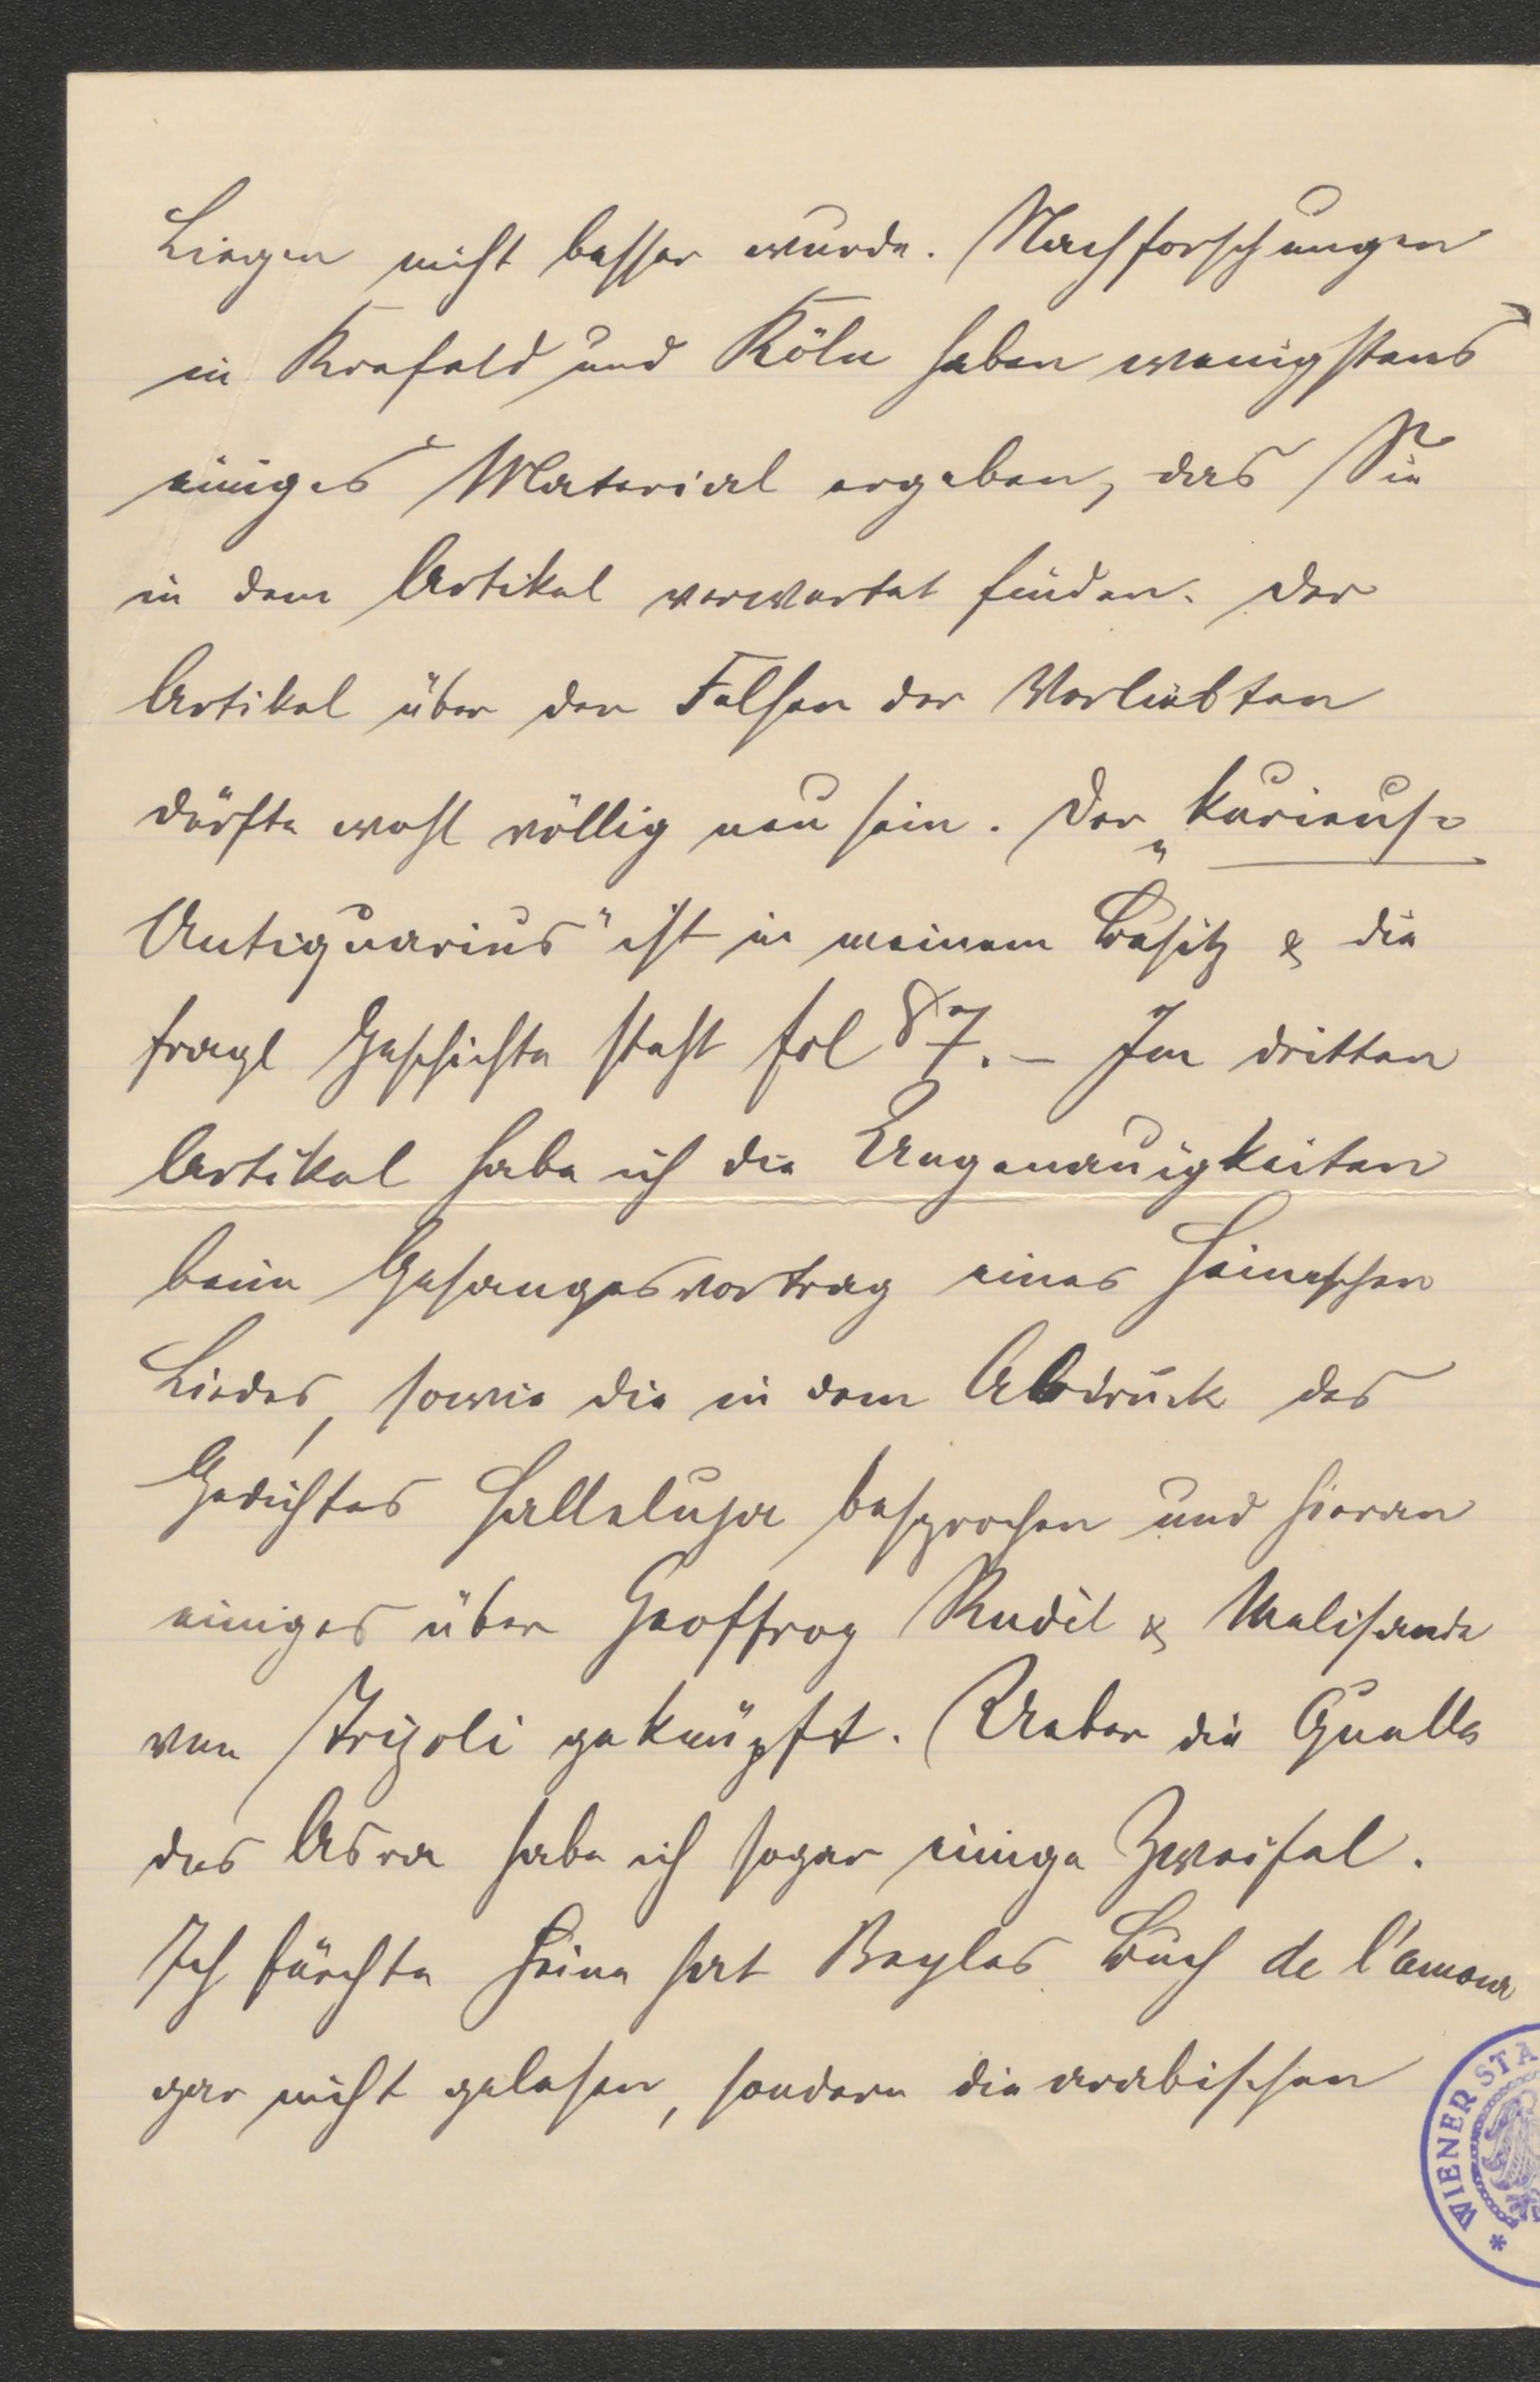 Liegen nicht besser wurde. Nachforschungen
in Krefeld und Köln haben wenigstens
einiges Material ergeben, das Sie
in dem Artikel verwertet finden. Der
Artikel über den Felsen der Verliebten
dürfte wohl völlig neu sein. Der „kurieuse
Antiquarius" ist in meinem Besitz & die
fragl Geschichte steht fol 87. – Im dritten
Artikel habe ich die Ungenauigkeiten
beim Gesangesvortrag eines Heineschen
Liedes, sowie die in dem Abdruck des
Gedichtes Halleluja besprochen und hieran
einiges über Geoffroy Rudèl & Melisande
von Tripoli geknüpft. Ueber die Quelle
des Asra habe ich sogar einige Zweifel.
Ich fürchte Heine hat Beyles Buch de l'amour
gar nicht gelesen, sondern die arabischen
* WIENER STA